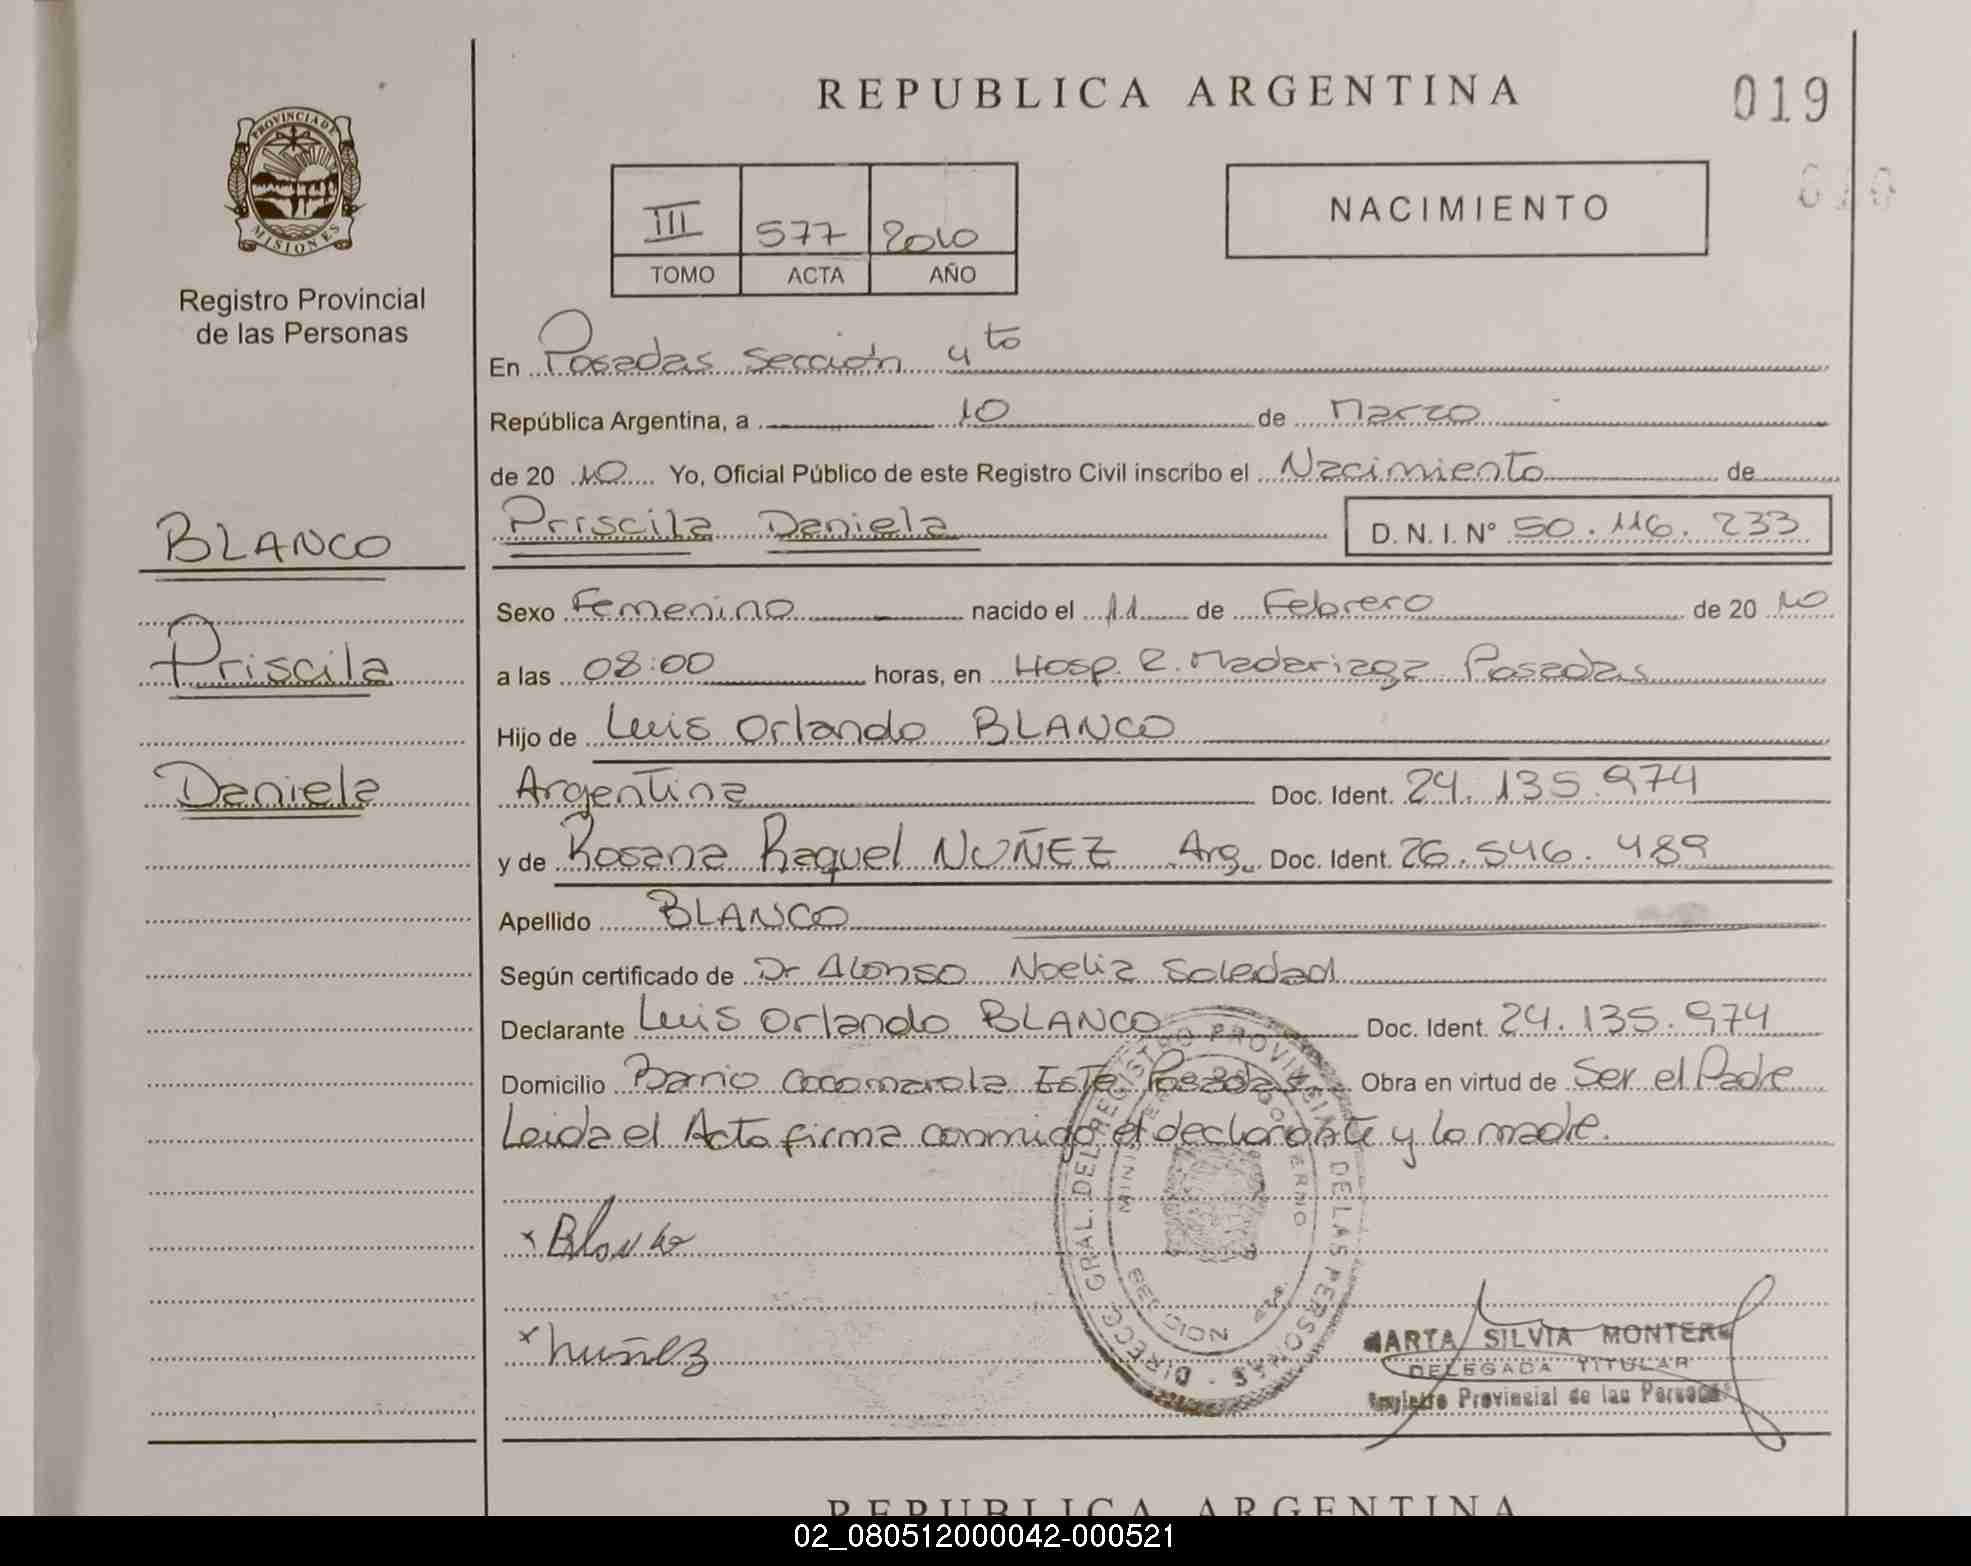 REPUBLICA ARGENTINA
019
PROVINCIA DE MISIONES
Registro Provincial
de las Personas
III 577 2010
TOMO ACTA AÑO
NACIMIENTO
En Posadas sección 4to
República Argentina, a 10 de Marzo
de 20 10 Yo, Oficial Público de este Registro Civil inscribo el Nacimiento de
BLANCO
Priscila Daniela D. N. I. N° 50.116.233
Sexo Femenino nacido el 11 de Febrero de 20 10
Priscila
a las 08:00 horas, en Hosp. R. Madariaga Posadas
Hijo de Luis Orlando BLANCO
Daniela
Argentina Doc. Ident. 24.135.974
y de Rosana Raquel NUÑEZ Arg. Doc. Ident. 26.546.489
Apellido BLANCO
Según certificado de Dr Alonso Noelia Soledad
Declarante Luis Orlando BLANCO Doc. Ident. 24.135.974
Domicilio Barrio Cocomarola Este Posadas Obra en virtud de Ser el Padre
Leida el Acta firma conmigo el declarante y la madre.
DIRECC. GRAL. DEL REGISTRO PROVINCIAL DE LAS PERSONAS
x Blanco
x Nuñez
MARTA SILVIA MONTERO
DELEGADA TITULAR
Registro Provincial de las Personas
REPUBLICA ARGENTINA
02_080512000042-000521